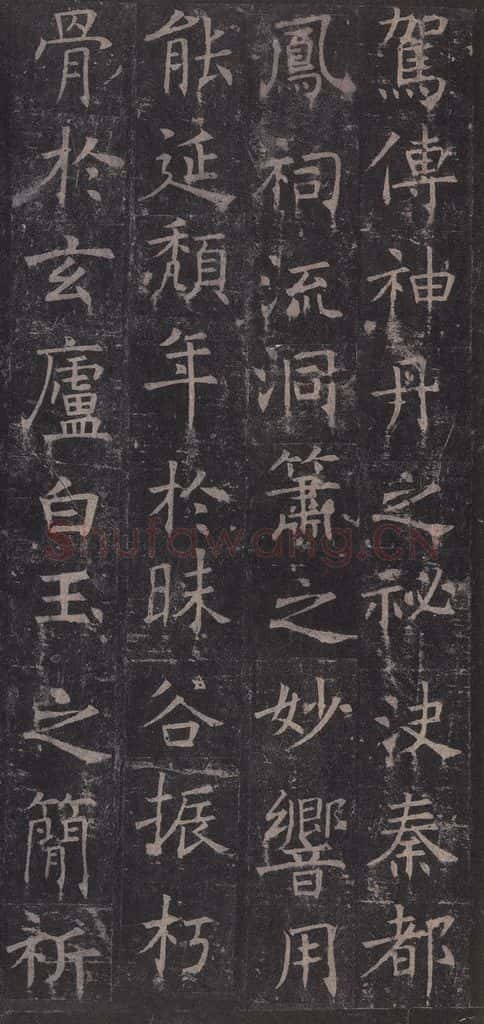 駕傳神丹之祕決秦都
鳳祠流洞簫之妙響用
能延頹年於昧谷振朽
骨於玄廬白玉之簡祈
Shufawang.CN